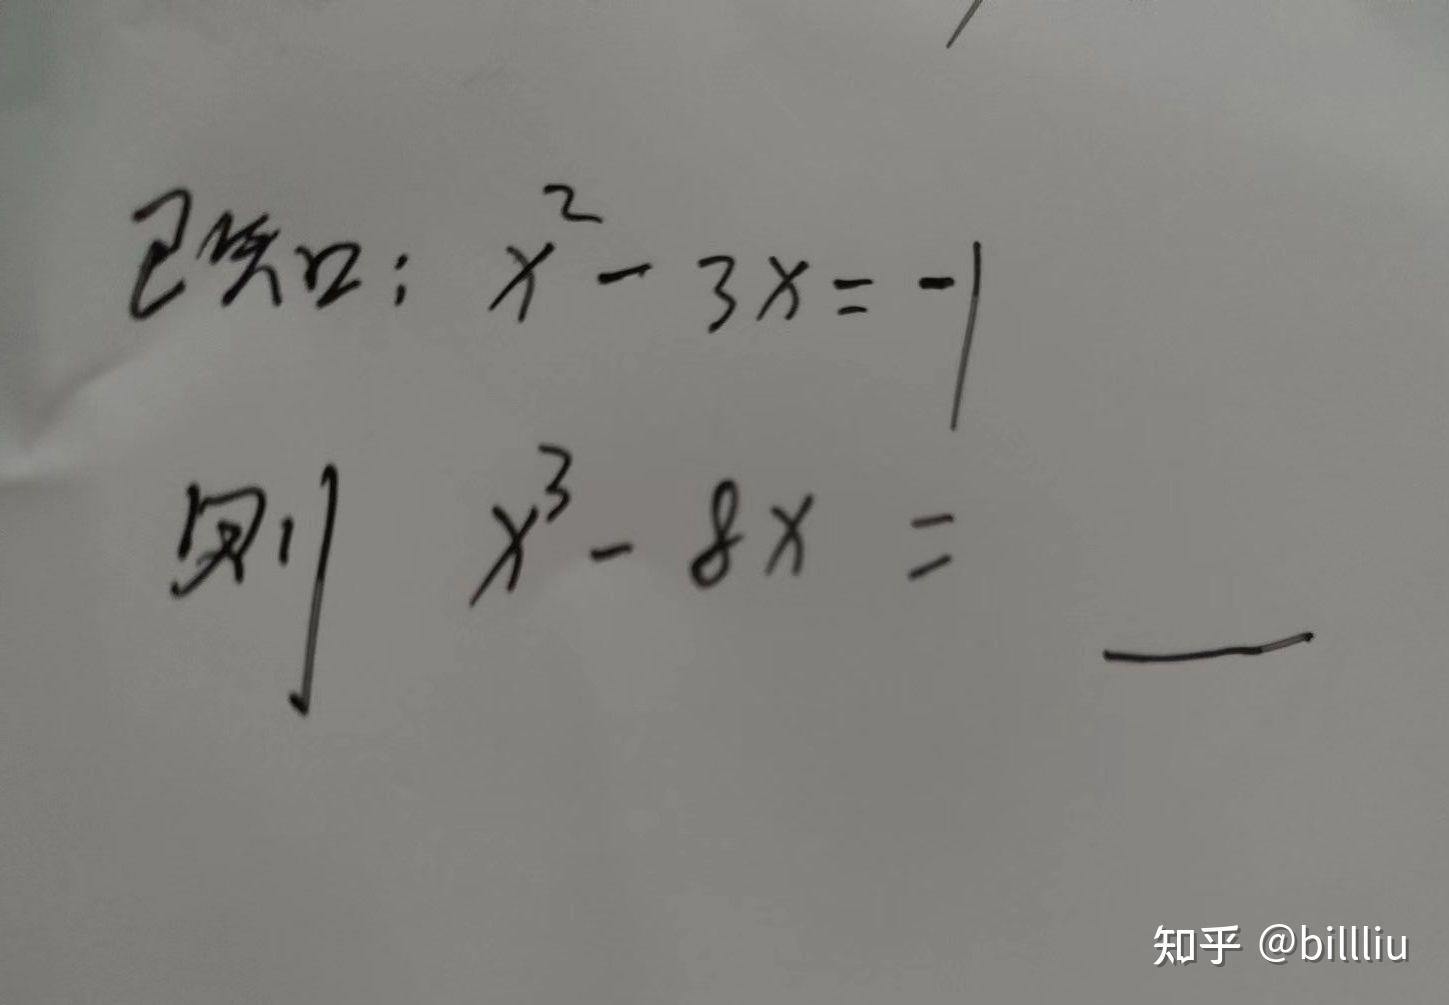 已知: x² - 3x = -1
则 x³ - 8x = __
知乎 @billliu